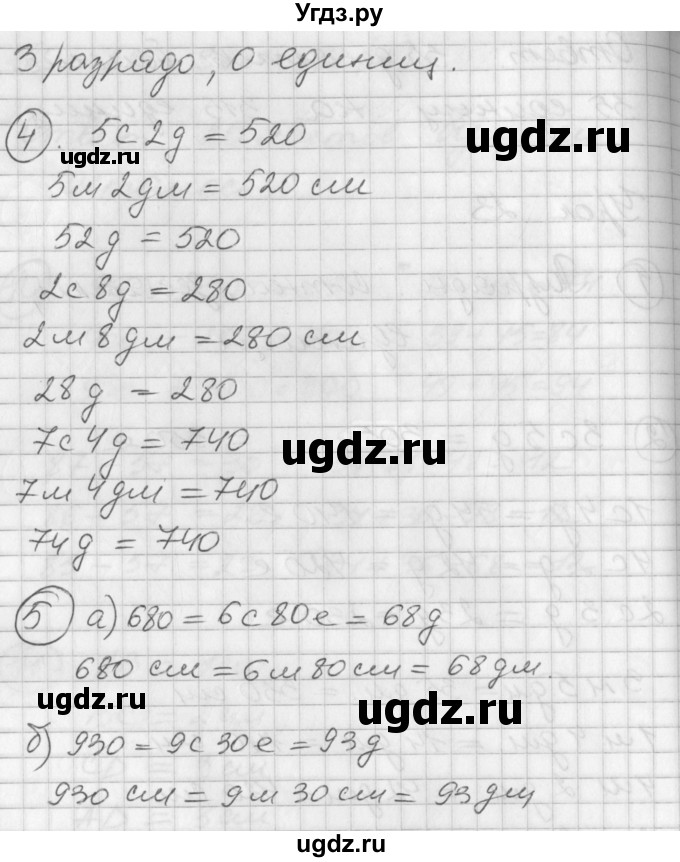 Угдз.ру
3 разрядо, 0 единиц.
4. 5с 2д = 520
ugdz.ru
ugdz.ru
5м 2дм = 520 см
52д = 520
2с 8д = 280
2м 8дм = 280 см
28д = 280
7с 4д = 740
ugdz.ru
ugdz.ru
7м 4дм = 740
74д = 740
5 а) 680 = 6с 80е = 68д
680 см = 6м 80см = 68дм.
ugdz.ru
ugdz.ru
б) 930 = 9с 30е = 93д
930 см = 9м 30см = 93дм
ugdz.ru